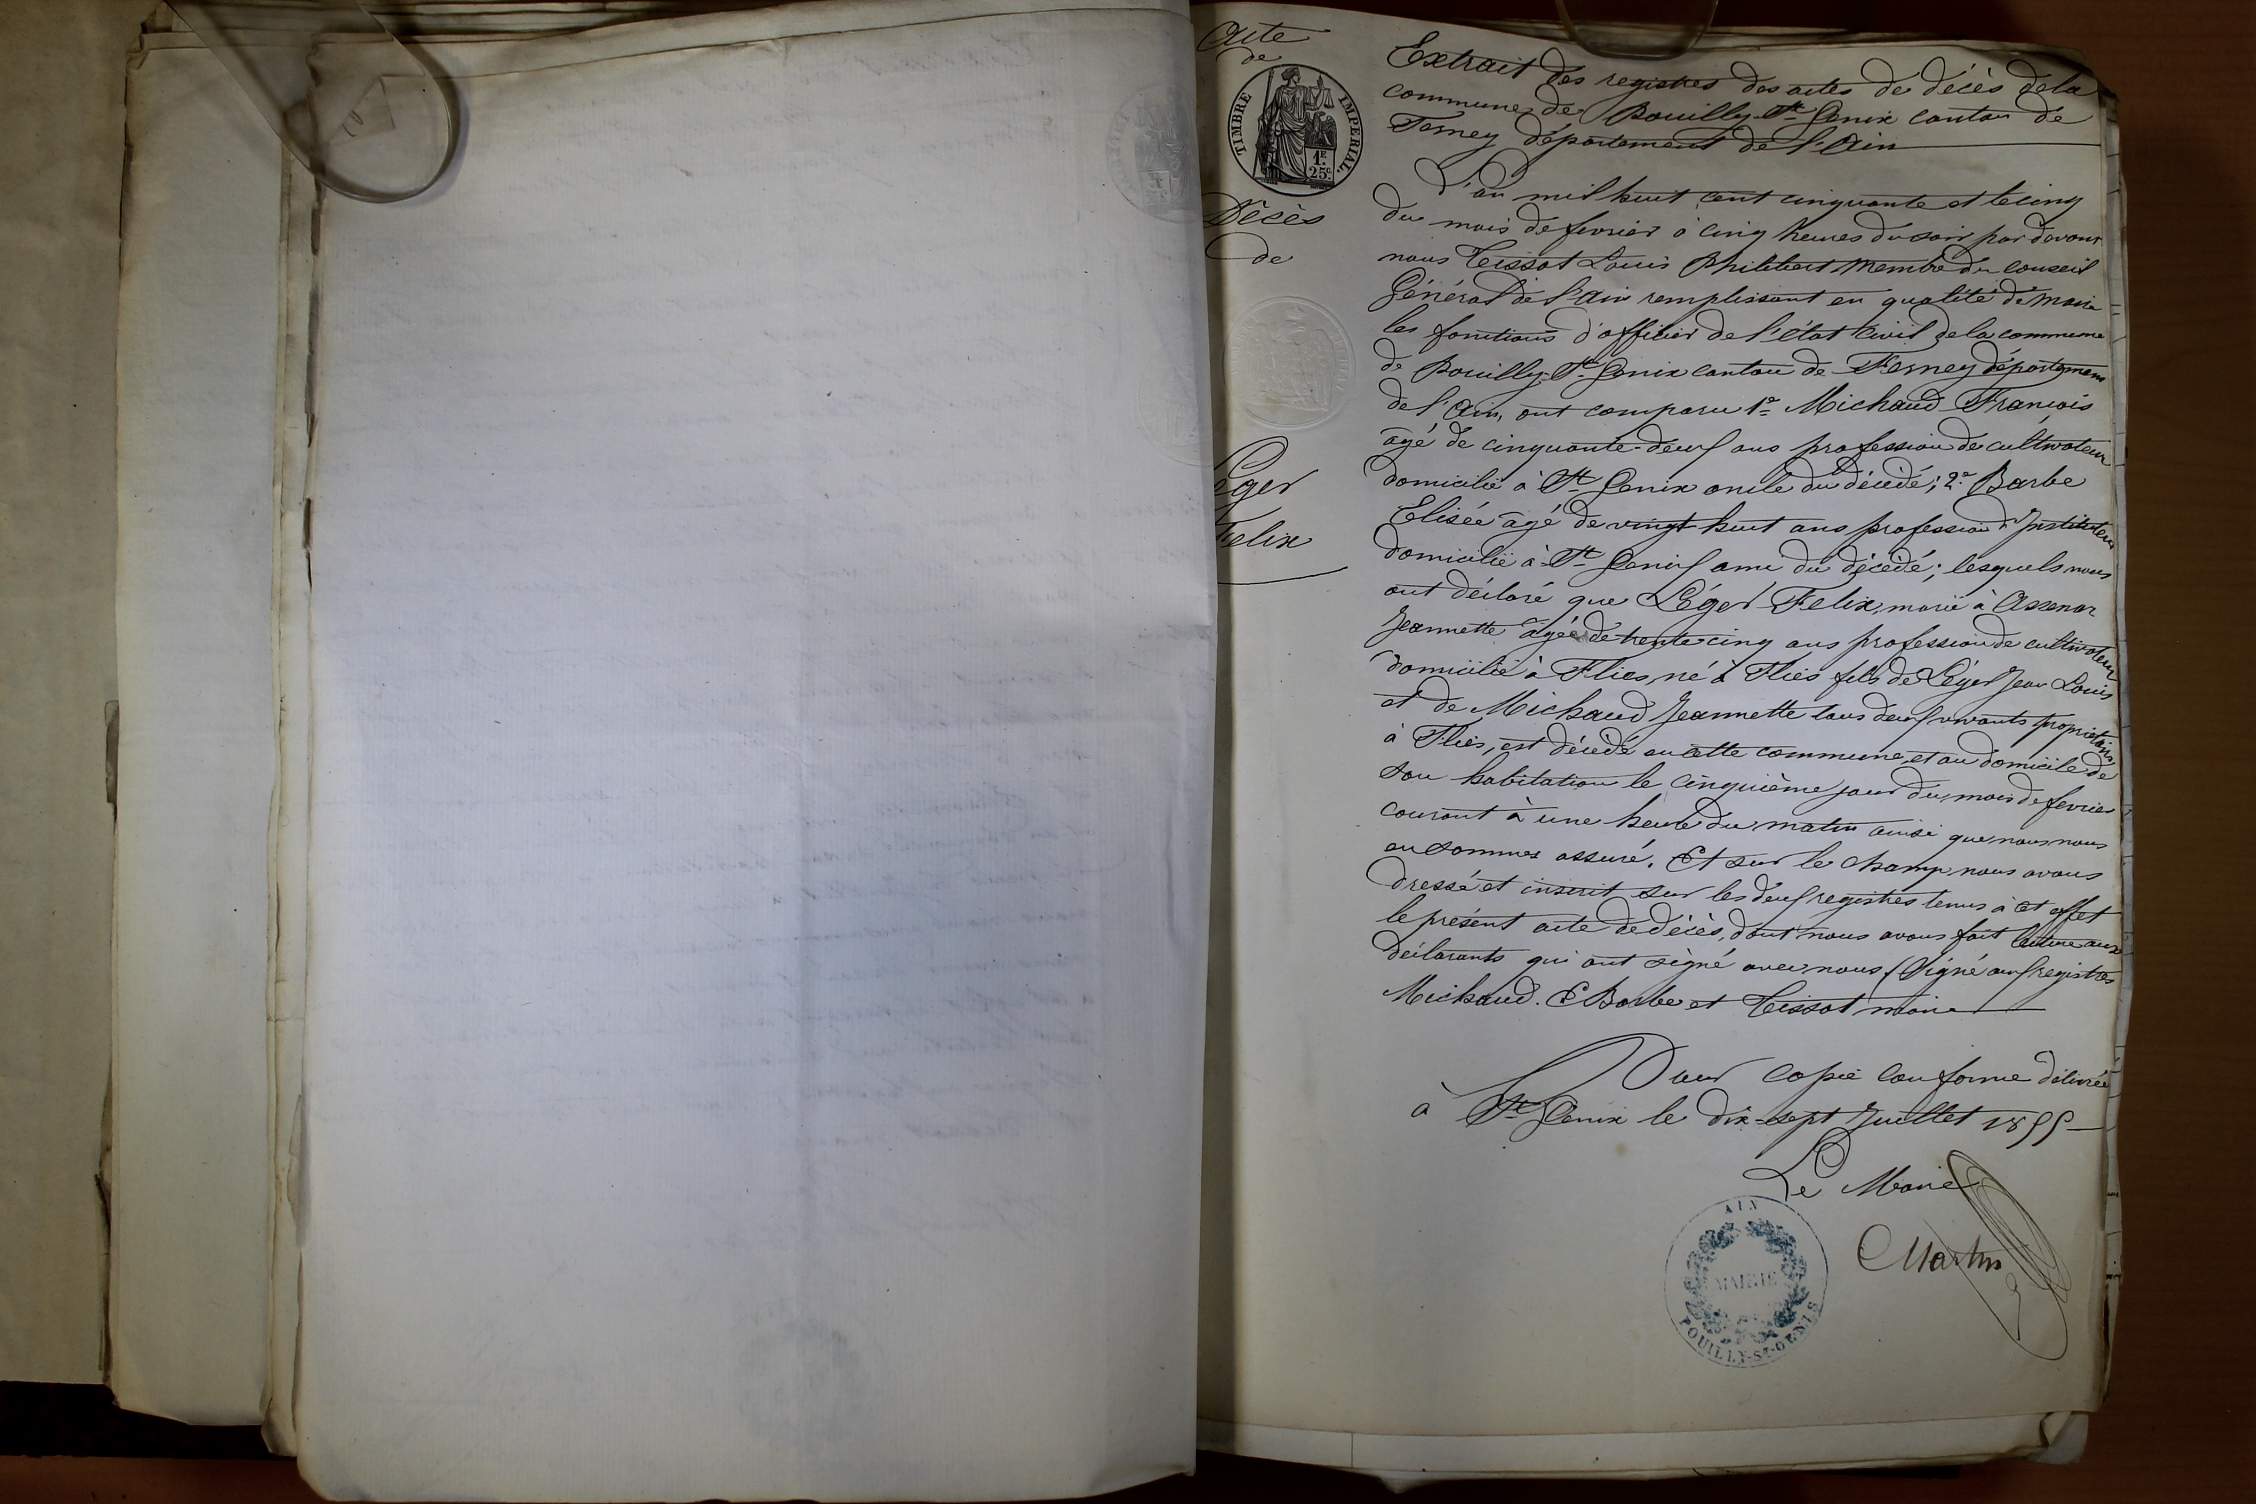 Acte
de
TIMBRE IMPERIAL
1F.
25c.
Décès
de
Léger
Felix
Extrait des registres des actes de décès de la
commune de Pouilly-St Genix canton de
Ferney département de l'Ain
L'an mil huit cent cinquante et le cinq
du mois de fevrier à cinq heures du soir par devant
nous Tissot Louis Philibert membre du conseil
Général de l'Ain remplissant en qualité de maire
les fonctions d'officier de l'état civil de la commune
de Pouilly-St Genix canton de Ferney département
de l'Ain, ont comparu 1º Michaud François
âgé de cinquante-deux ans profession de cultivateur
domicilié à St Genix oncle du décédé; 2º Barbe
Elisée âgé de vingt-huit ans profession d'Instituteur
domicilié à St Genix ami du décédé; lesquels nous
ont déclaré que Léger Felix, marié à
Jeannette âgée de trente cinq ans profession de cultivateur
domicilié à Flies, né à Flies fils de Léger Jean Louis
et de Michaud Jeannette tous deux vivants propriétaires
à Flies, est décédé en cette commune, et au domicile de
son habitation le cinquième jour du mois de fevrier
courant à une heure du matin ainsi que nous nous
en sommes assuré. Et sur le champ nous avons
dressé et inscrit sur les deux registres tenus à cet effet
le présent acte de décès, dont nous avons fait lecture aux
déclarants qui ont signé avec nous (Signé aux registres
Michaud. E Barbe et Tissot maire
Pour copie conforme délivrée
à St Genix le dix-sept Juillet 1855
Le Maire
Martin
AIN
MAIRIE
POUILLY-ST-GENIS